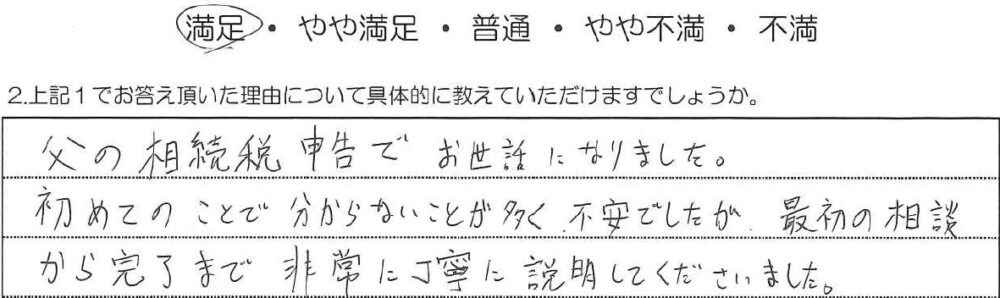 満足・やや満足・普通・やや不満・不満
2.上記1でお答え頂いた理由について具体的に教えていただけますでしょうか。
父の相続税申告でお世話になりました。
初めてのことで分からないことが多く、不安でしたが、最初の相談
から完了まで非常に丁寧に説明してくださいました。